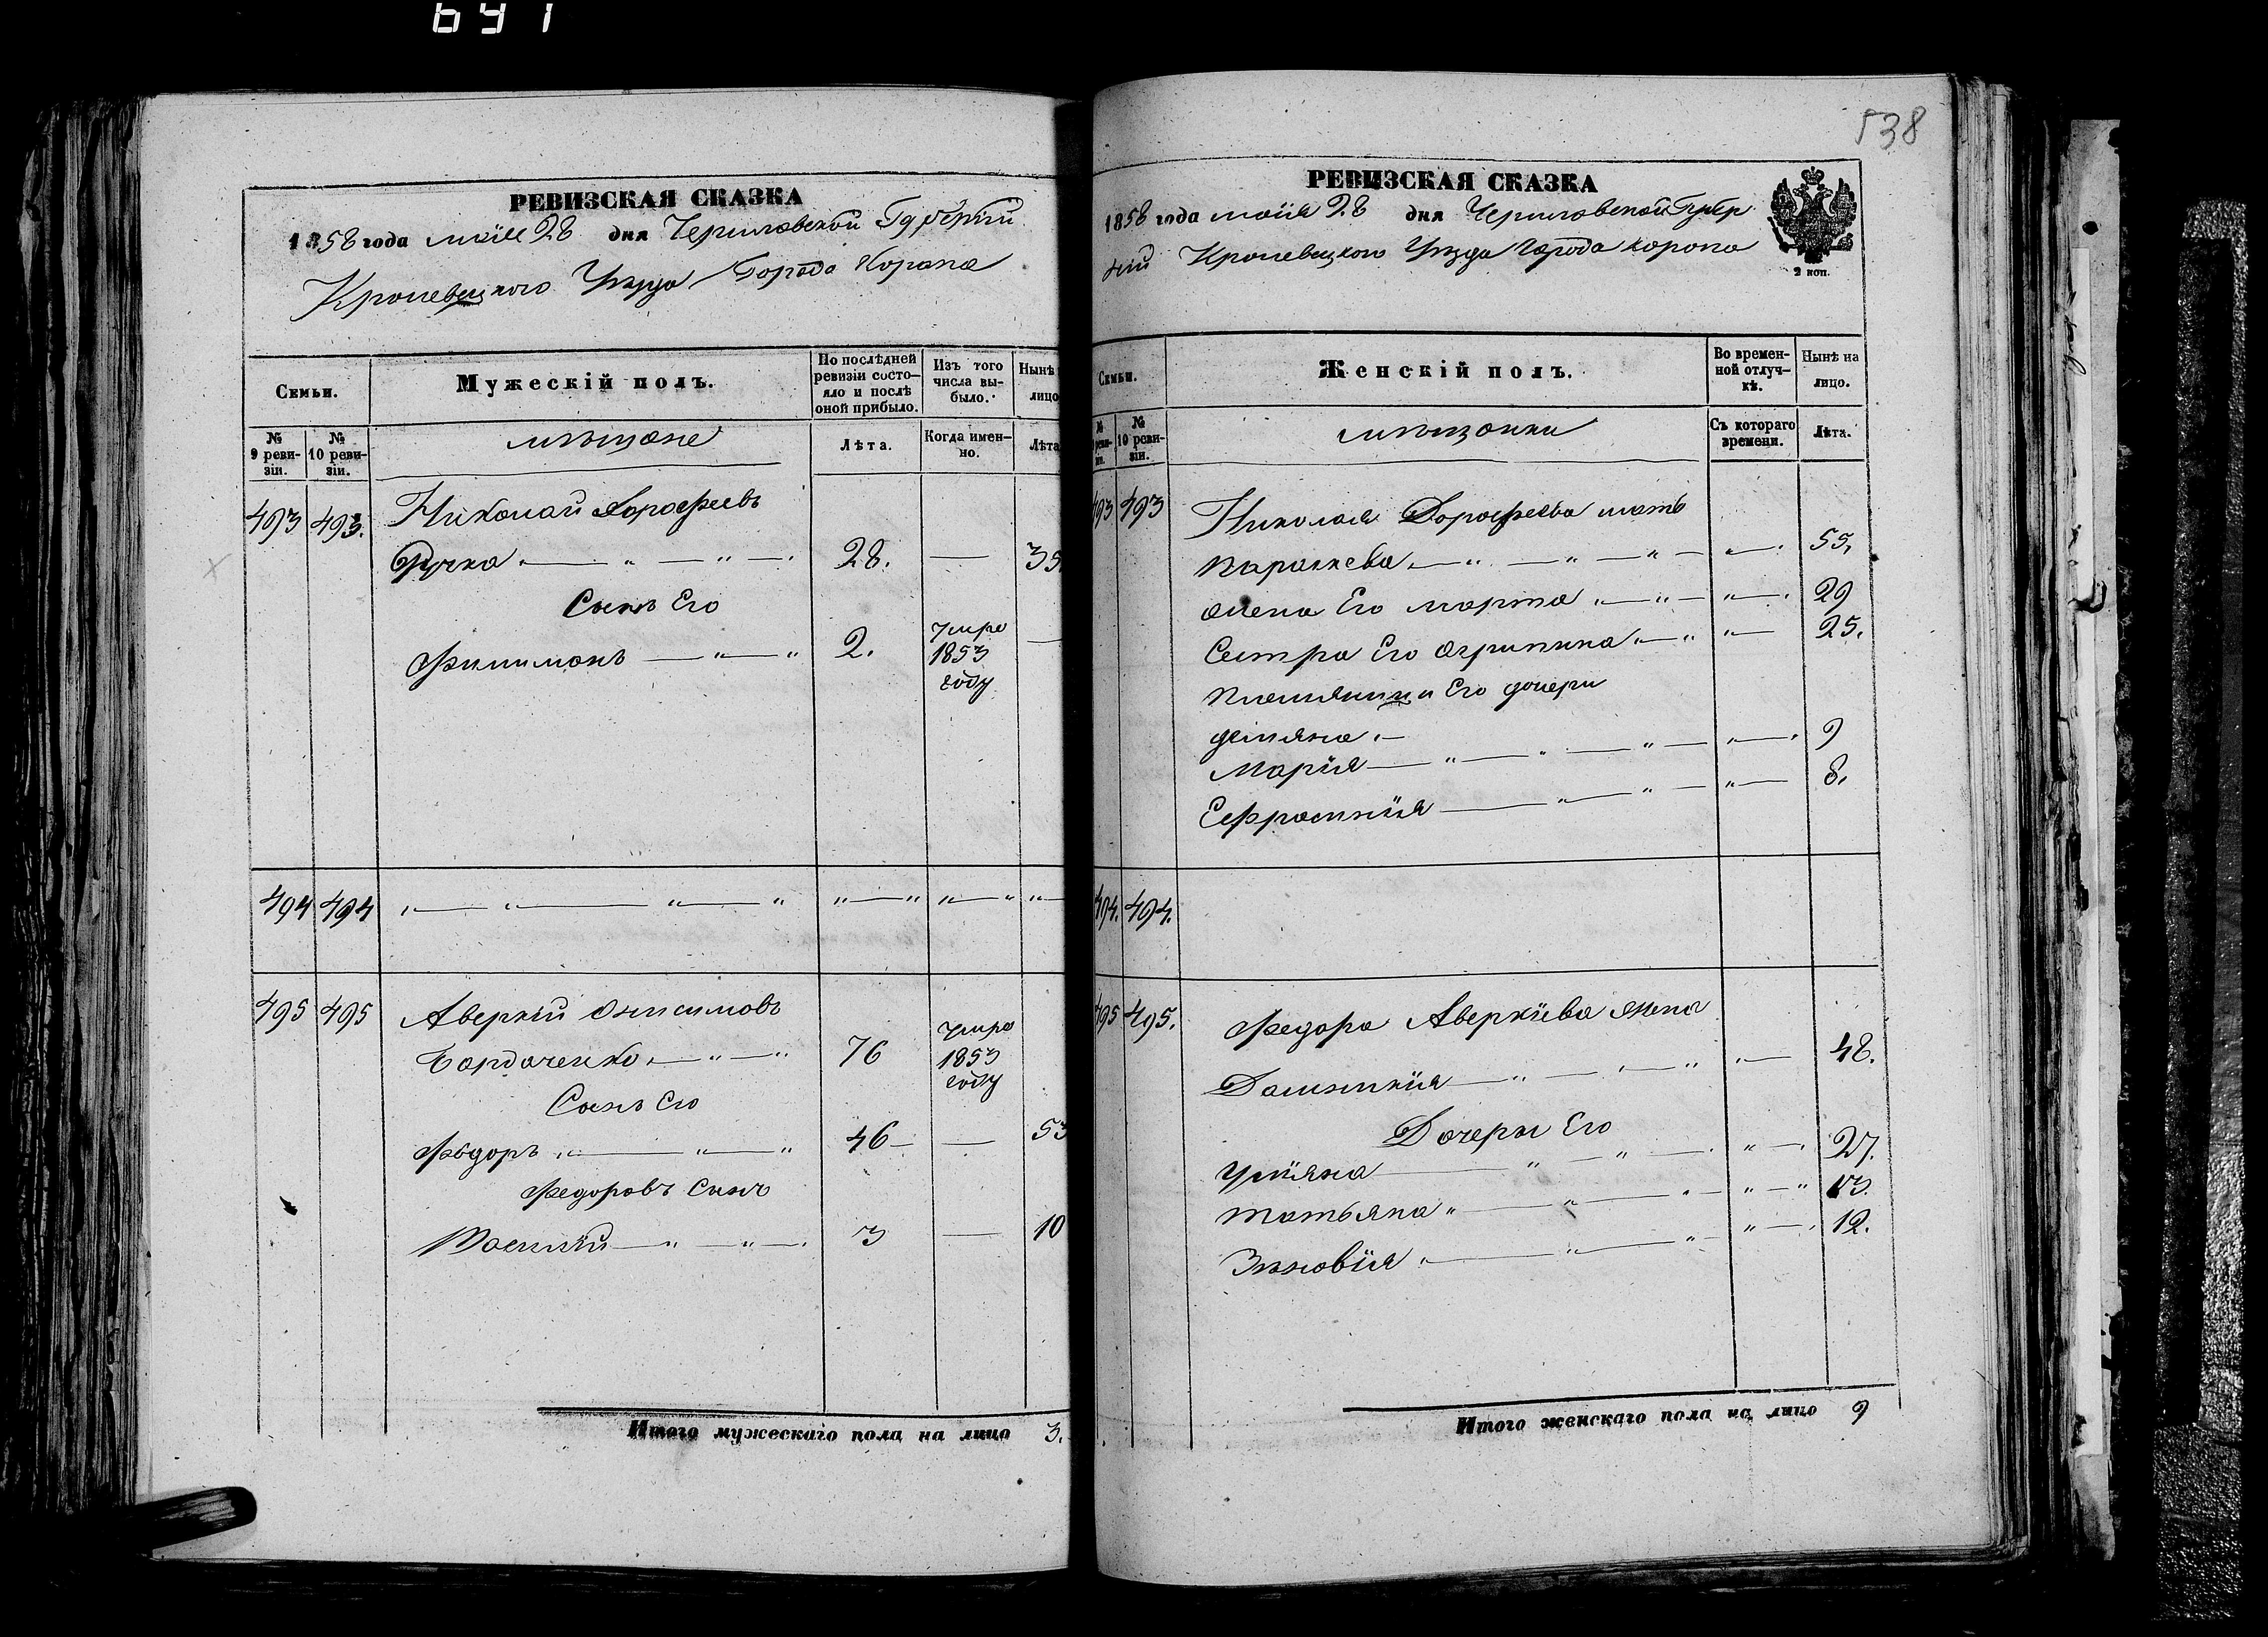 691
РЕВИЗСКАЯ СКАЗКА
1858 года маія 28 дня Черниговской Губерніи
Кролевецкого Уезда Города Коропа
Семьи.
Мужескій полъ.
По послѣдней ревизіи состо-
яло и послѣ оной прибыло.
Изъ того числа вы-
было.
Нынѣ
лицо
№ 9 реви-
зіи.
№ 10 реви-
зіи.
мѣщане
Лѣта.
Когда имен-
но.
Лѣта
493 493. Николай Дорофеевъ
Ручка 28. — 35
Сынъ Его
Филимонъ 2. умре 1853 году —
494 494
495 495 Аверкій Онисимовъ
Бардаченко 76 умре 1853 году
Сынъ Его
Фѣдоръ 46 — 53
Федоровъ Сынъ
Василій 3 — 10
Итого мужескаго пола на лицо 3.
538
РЕВИЗСКАЯ СКАЗКА
1858 года маія 28 дня Черниговской Губер
ніи Кролевецкого Уезда города коропа
2 коп.
Семьи.
Женскій полъ.
Во времен-
ной отлуч-
кѣ.
Нынѣ на
лицо.
№ реви-
зіи.
№ 10 реви-
зіи.
мѣщанки
Съ котораго
времени.
Лѣта.
493 493 Николая Дорофеева мать
Параскева 55.
жена Его марта 29
Сестра Его Агрипина 25.
Племянници Его дочери
демяна
Марія 9
Ефросинія 8.
494. 494.
495 495. Федора Аверкіева жена
Домникія 48.
Дочери Его
Уліяна 27.
Татьяна 13.
Зѣновія 12.
Итого женскаго пола на лицо 9